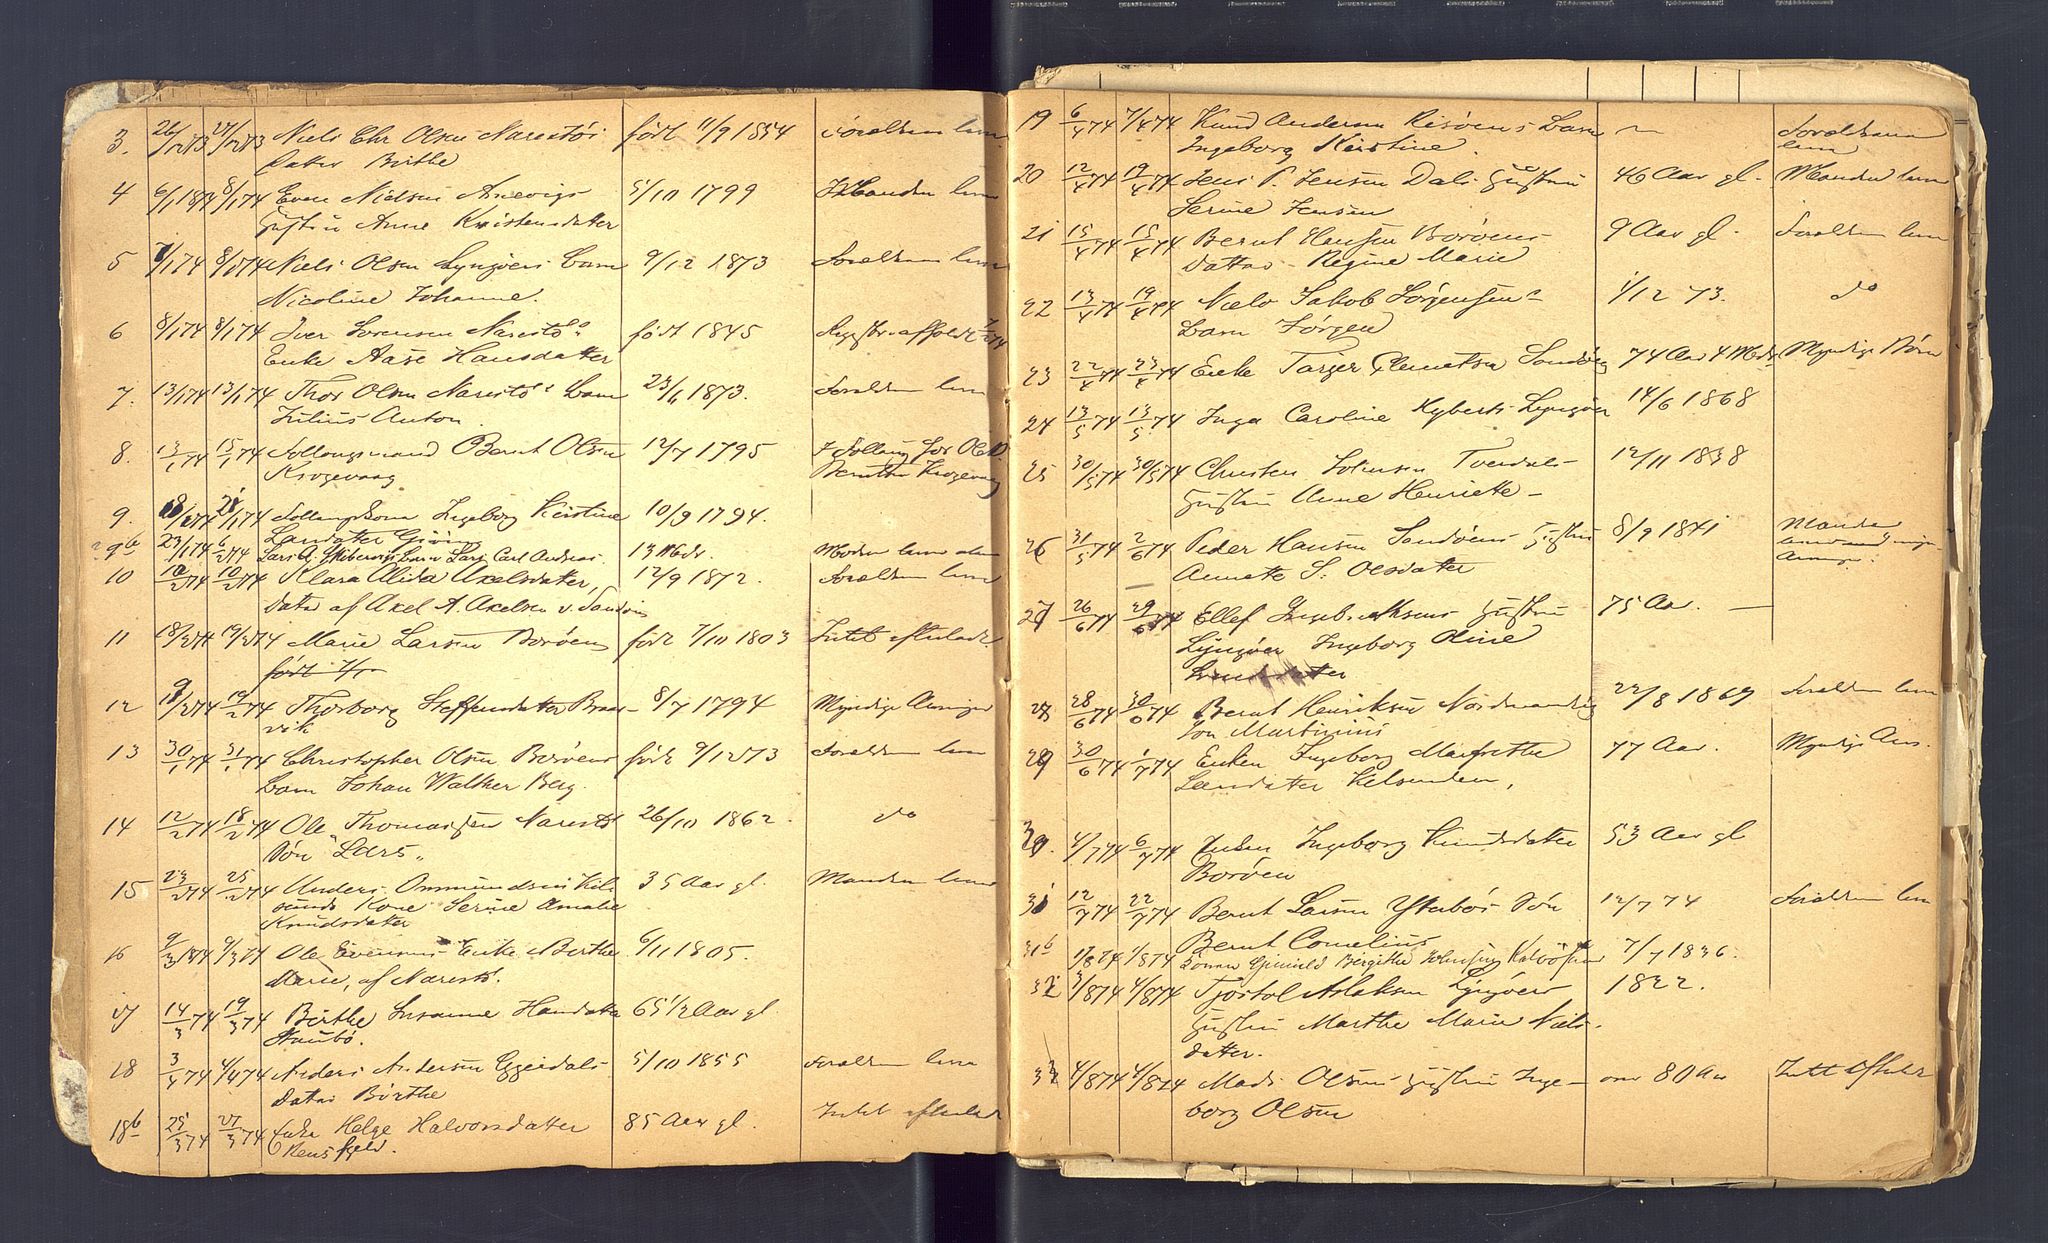 3. 26/12 73 27/12 73 Niels Chr Olsen Narestøs født 11/9 1854 Forældrene leve
Datter Birthe
4 6/1 1874 8/1 74 Even Nielsen Arnevigs 5/10 1799 Manden leve
Hustru Anne Kristensdatter
5 7/1 74 8/1 74 Niels Olsen Lyngørs Barn 9/12 1873 Forældrene leve
Nicoline Johanne.
6 8/1 74 8/1 74 Iver Sørensen Narestø født 1845
Enke Aase Hansdatter
7. 13/1 74 13/1 74 Thor Olsen Narestøs Barn 23/6 1873. Forældrene leve
Julius Anton
8. 13/1 74 15/1 74 Follaugsmand Bernt Olsen 12/7 1795 I Follaug hos Ole
Krogevaag Krogevaag
9. 18/1 74 21/1 74 Ingeborg Kirstine 10/9 1794.
Larsdatter
9b 23/1 74 6/2 74 Lars Barn Lars Carl Andreas 13 Mdr. Moderen leve
10 10/2 74 10/2 74 Klara Alida Axelsdatter, 12/9 1872. Forældrene leve
Datter af Axel A. Axelsen v. Sandøen
11 18/2 74 19/2 74 Marie Larsen Borøen født 7/10 1803 Intet efterladt
født 7/10
12 18/2 74 19/2 74 Thorborg Steffensdatter Braas- 8/7 1794 Myndige Arvinger
vik
13 30/1 74 31/1 74 Christopher Olsen Borøens født 9/12 73 Forældrene leve
Barn Johan Walther Berg.
14 12/2 74 18/2 74 Ole Thomassen Narestø 26/10 1862. do
Søn "Lars"
15 23/2 74 25/2 74 Anders Ommundsen Kil- 35 Aar gl. Manden leve
sunds Kone Serine Amalie
Knudsdatter
16 9/3 1874 9/3 74 Ole Evensens Enke Birthe 6/11 1805.
Marie, af Narestø.
17 14/3 74 19/3 74 Birthe Susanne Hansdatter 65 1/2 Aar gl
Staubø.
18 3/4 74 4/4 74 Anders Andersen Eggedals 5/10 1855 Forældrene leve
Datter Birthe
18b 25/3 74 27/3 74 Enke Helge Halvorsdatter 85 Aar gl. Intet efterladt
19 6/4 74 7/4 74 Knud Andersen Risøens Barn Forældrene
Ingeborg Kirstine. leve
20 12/4 74 19/4 74 Jens P. Jensen Dals Hustru 46 Aar gl. Manden leve
Serine Jensen
21 15/4 74 15/4 74 Bernt Hansen Borøens 9 Aar gl. Forældrene leve
Datter Regine Marie
22 13/4 74 19/4 74 Niels Jakob Jørgensens 1/12 73. do
Barn Jørgen
23 22/4 74 23/4 74 Enke Tarjer Clemetsen Sandøen 74 Aar 4 Mdr Myndige Børn
24 13/5 74 13/5 74 Inga Caroline Lyngør 14/6 1868
25 30/5 74 30/5 74 Christen Tvedal- 12/11 1838
Hustru Anne Henriette
26 31/5 74 2/6 74 Peder Hansen Sandøens Hustru 8/9 1841 Manden
Annette S. Olsdatter
27 26/6 74 29/6 74 Ellef Hustru 75 Aar.
Lyngør Ingeborg Oline
28 28/6 74 30/6 74 Bernt Henriksen 22/8 1869 Forældrene leve
Søn Martinius
29 30/6 74 1/7 74 Enken Ingeborg Margrethe 77 Aar. Myndige Arv.
Larsdatter Kilsunden,
30. 4/7 74 6/7 74 Enken Ingeborg Knudsdatter 53 Aar gl
Borøen
31 12/7 74 22/7 74 Bernt Larsen Ytterbøs Søn 12/7 74 Forældrene leve
Bernt Cornelius
31b 1/8 74 1/8 74 Birgitte 7/7 1836.
32 3/8 74 4/8 74 Tjøstol Aslaksen Lyngørs 1822.
Hustru Marthe Marie Niels-
datter.
33 4/8 74 4/8 74 Mads Olsens Hustru Inge- over 80 Aar Intet efterladt
borg Olsen